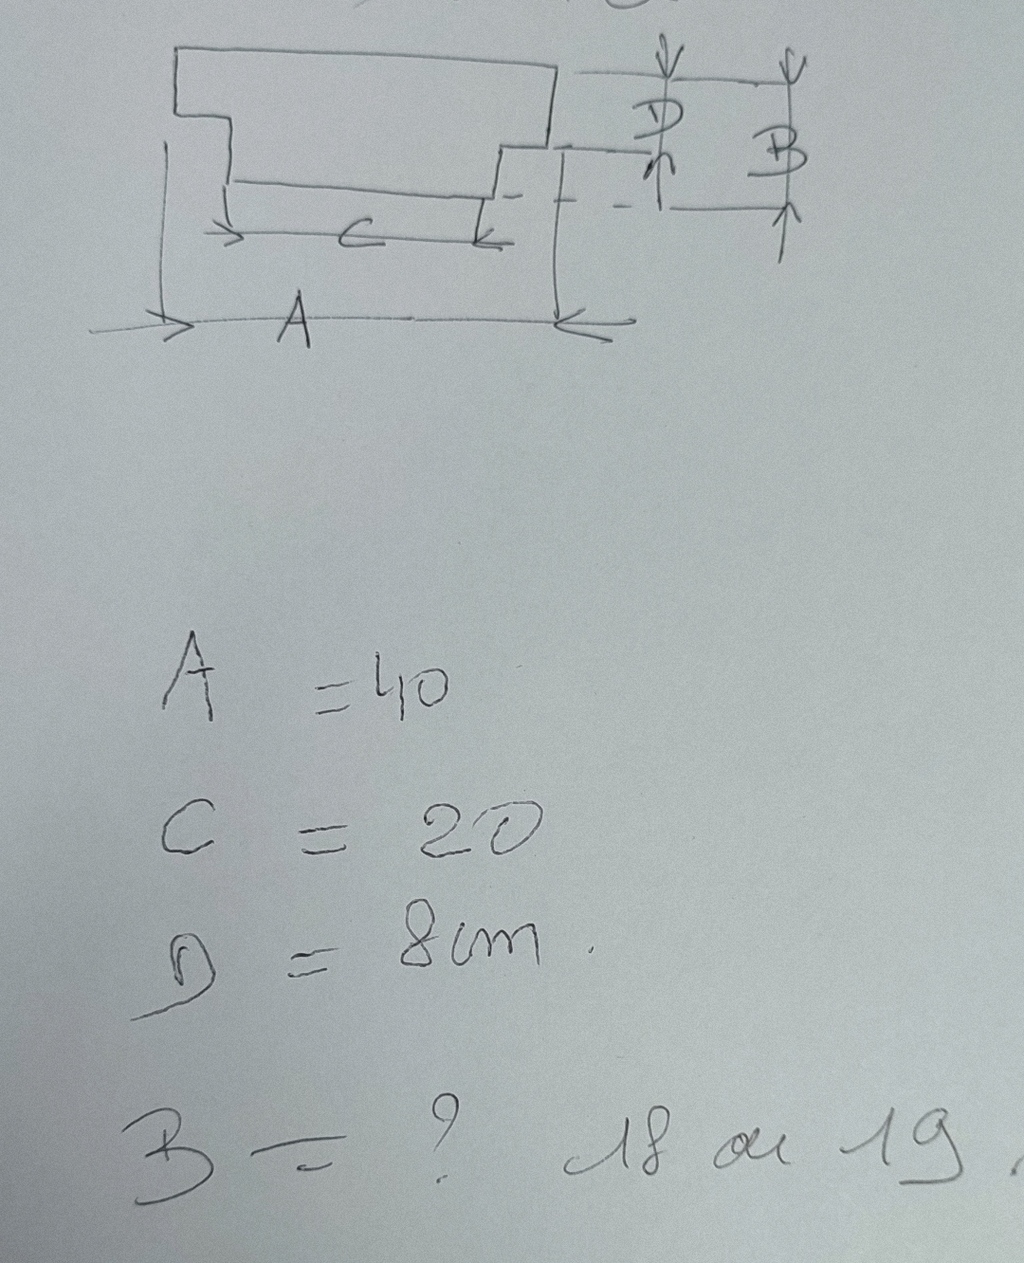 D
B
C
A
A = 40
C = 20
D = 8cm.
B = ? 18 ou 19.